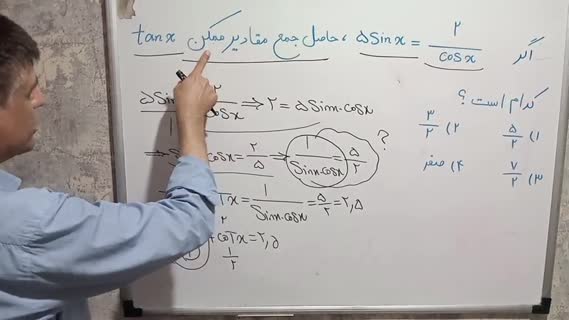 اگر ۵Sinx = ۲/cosx ، حاصل جمع مقادیر ممکن tanx
کدام است؟
۱) ۵/۲ ۲) ۳/۲
۳) ۷/۲ ۴) صفر
۲/cosx ⇒ ۲ = ۵Sinx·cosx
⇒ cosx = ۲/۵ ⇒ ۱/Sinx·cosx = ۵/۲ ?
Tx = ۱/Sinx·cosx = ۵/۲ = ۲,۵
+ coTx = ۲,۵
۱/۲